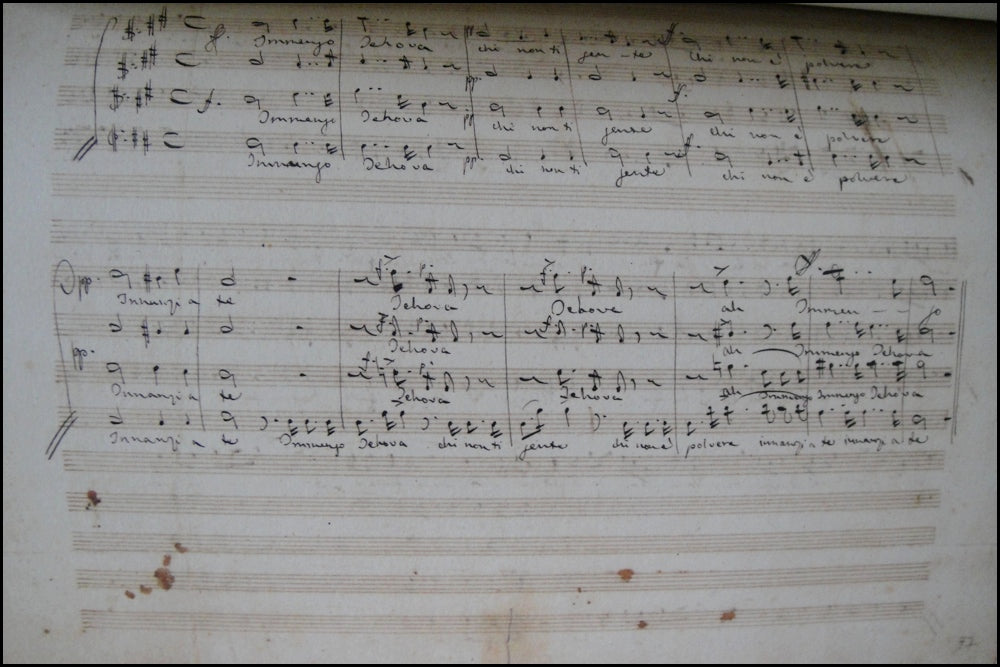 Immenso Jehova chi non ti sen-te chi non è polvere
Immenso Jehova chi non ti sente chi non è polvere
Immenso Jehova chi non ti sente chi non è polvere
Innanzi a te Jehova Jehova ah Immen - -
Jehova ah Immenso Jehova
Innanzi a te Jehova Jehova ah Immenso Immenso Jehova
Innanzi a te Immenso Jehova chi non ti sente chi non è polvere innanzi a te innanzi a te